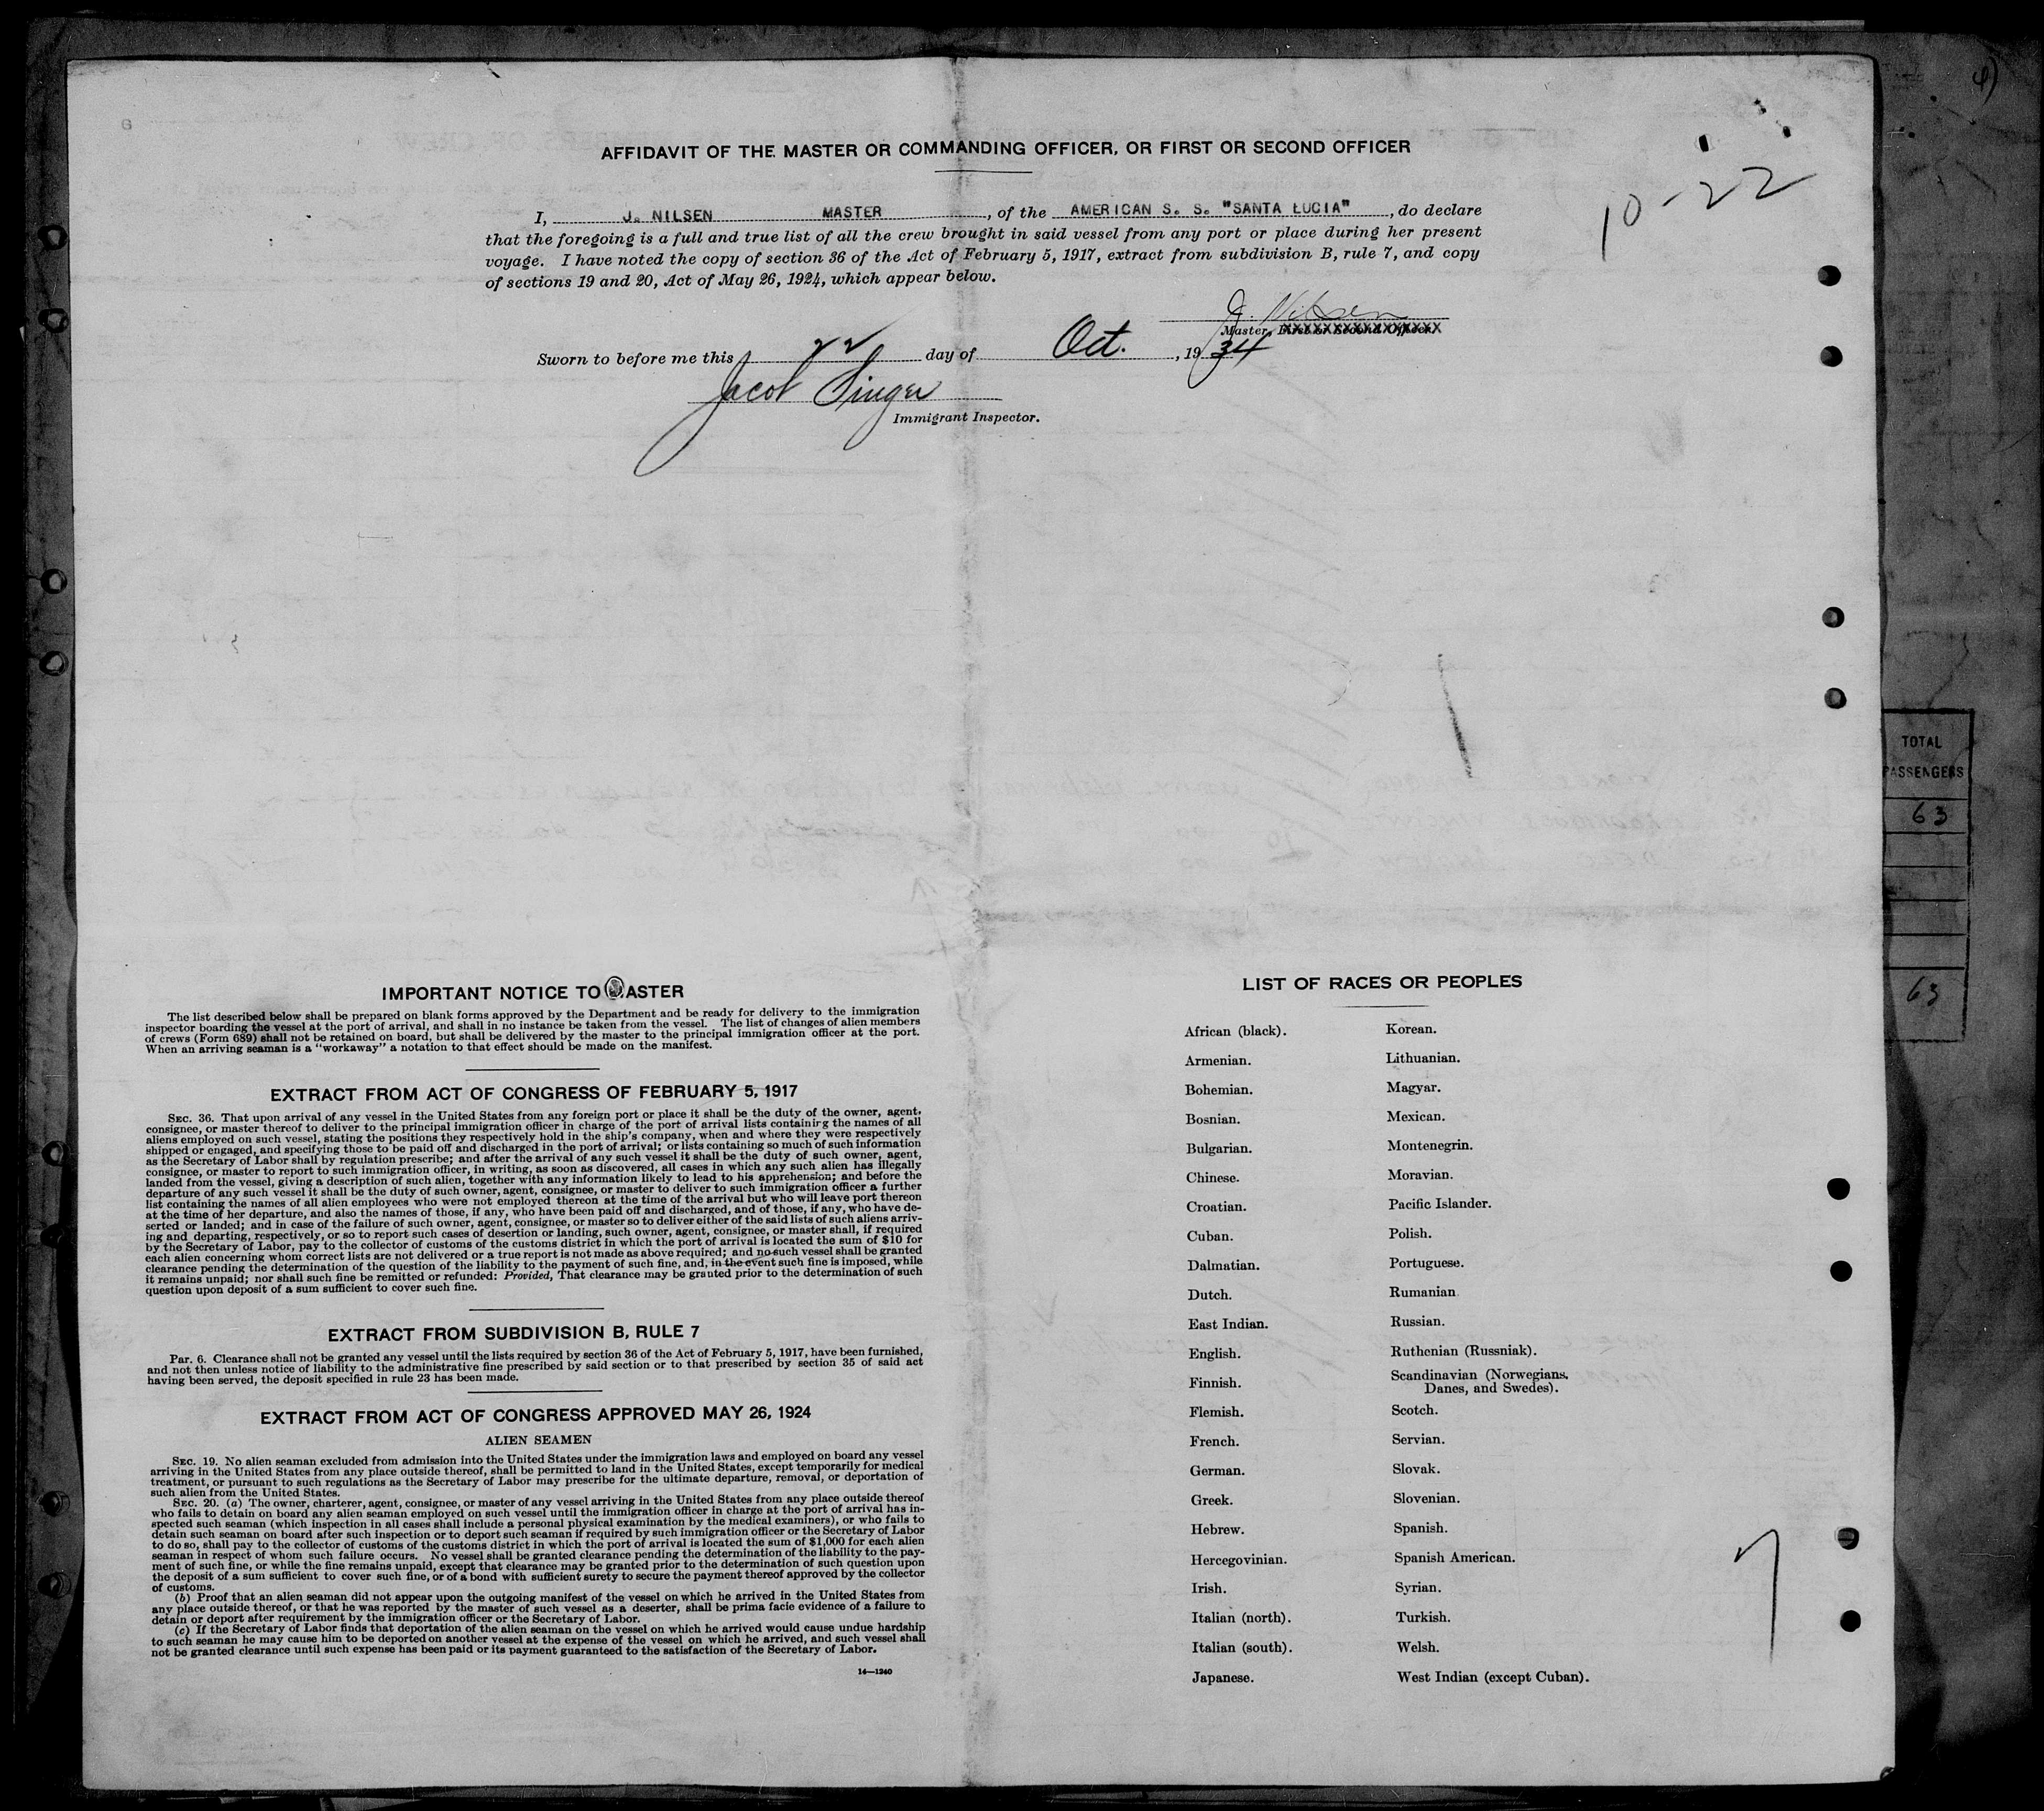 AFFIDAVIT OF THE MASTER OR COMMANDING OFFICER, OR FIRST OR SECOND OFFICER
10-22
I, J. NILSEN MASTER, of the AMERICAN S. S. "SANTA LUCIA", do declare
that the foregoing is a full and true list of all the crew brought in said vessel from any port or place during her present
voyage. I have noted the copy of section 36 of the Act of February 5, 1917, extract from subdivision B, rule 7, and copy
of sections 19 and 20, Act of May 26, 1924, which appear below.
J. Nilsen
Master, First or Second Officer.
Sworn to before me this 22 day of Oct., 1934
Jacob Singer
Immigrant Inspector.
TOTAL
PASSENGERS
63
63
IMPORTANT NOTICE TO MASTER
The list described below shall be prepared on blank forms approved by the Department and be ready for delivery to the immigration
inspector boarding the vessel at the port of arrival, and shall in no instance be taken from the vessel. The list of changes of alien members
of crews (Form 689) shall not be retained on board, but shall be delivered by the master to the principal immigration officer at the port.
When an arriving seaman is a "workaway" a notation to that effect should be made on the manifest.
EXTRACT FROM ACT OF CONGRESS OF FEBRUARY 5, 1917
SEC. 36. That upon arrival of any vessel in the United States from any foreign port or place it shall be the duty of the owner, agent,
consignee, or master thereof to deliver to the principal immigration officer in charge of the port of arrival lists containing the names of all
aliens employed on such vessel, stating the positions they respectively hold in the ship's company, when and where they were respectively
shipped or engaged, and specifying those to be paid off and discharged in the port of arrival; or lists containing so much of such information
as the Secretary of Labor shall by regulation prescribe; and after the arrival of any such vessel it shall be the duty of such owner, agent,
consignee, or master to report to such immigration officer, in writing, as soon as discovered, all cases in which any such alien has illegally
landed from the vessel, giving a description of such alien, together with any information likely to lead to his apprehension; and before the
departure of any such vessel it shall be the duty of such owner, agent, consignee, or master to deliver to such immigration officer a further
list containing the names of all alien employees who were not employed thereon at the time of the arrival but who will leave port thereon
at the time of her departure, and also the names of those, if any, who have been paid off and discharged, and of those, if any, who have de-
serted or landed; and in case of the failure of such owner, agent, consignee, or master so to deliver either of the said lists of such aliens arriv-
ing and departing, respectively, or so to report such cases of desertion or landing, such owner, agent, consignee, or master shall, if required
by the Secretary of Labor, pay to the collector of customs of the customs district in which the port of arrival is located the sum of $10 for
each alien concerning whom correct lists are not delivered or a true report is not made as above required; and no such vessel shall be granted
clearance pending the determination of the question of the liability to the payment of such fine, and, in the event such fine is imposed, while
it remains unpaid; nor shall such fine be remitted or refunded: Provided, That clearance may be granted prior to the determination of such
question upon deposit of a sum sufficient to cover such fine.
EXTRACT FROM SUBDIVISION B, RULE 7
Par. 6. Clearance shall not be granted any vessel until the lists required by section 36 of the Act of February 5, 1917, have been furnished,
and not then unless notice of liability to the administrative fine prescribed by said section or to that prescribed by section 35 of said act
having been served, the deposit specified in rule 23 has been made.
EXTRACT FROM ACT OF CONGRESS APPROVED MAY 26, 1924
ALIEN SEAMEN
SEC. 19. No alien seaman excluded from admission into the United States under the immigration laws and employed on board any vessel
arriving in the United States from any place outside thereof, shall be permitted to land in the United States, except temporarily for medical
treatment, or pursuant to such regulations as the Secretary of Labor may prescribe for the ultimate departure, removal, or deportation of
such alien from the United States.
SEC. 20. (a) The owner, charterer, agent, consignee, or master of any vessel arriving in the United States from any place outside thereof
who fails to detain on board any alien seaman employed on such vessel until the immigration officer in charge at the port of arrival has in-
spected such seaman (which inspection in all cases shall include a personal physical examination by the medical examiners), or who fails to
detain such seaman on board after such inspection or to deport such seaman if required by such immigration officer or the Secretary of Labor
to do so, shall pay to the collector of customs of the customs district in which the port of arrival is located the sum of $1,000 for each alien
seaman in respect of whom such failure occurs. No vessel shall be granted clearance pending the determination of the liability to the pay-
ment of such fine, or while the fine remains unpaid, except that clearance may be granted prior to the determination of such question upon
the deposit of a sum sufficient to cover such fine, or of a bond with sufficient surety to secure the payment thereof approved by the collector
of customs.
(b) Proof that an alien seaman did not appear upon the outgoing manifest of the vessel on which he arrived in the United States from
any place outside thereof, or that he was reported by the master of such vessel as a deserter, shall be prima facie evidence of a failure to
detain or deport after requirement by the immigration officer or the Secretary of Labor.
(c) If the Secretary of Labor finds that deportation of the alien seaman on the vessel on which he arrived would cause undue hardship
to such seaman he may cause him to be deported on another vessel at the expense of the vessel on which he arrived, and such vessel shall
not be granted clearance until such expense has been paid or its payment guaranteed to the satisfaction of the Secretary of Labor.
14—1240
LIST OF RACES OR PEOPLES
African (black).
Armenian.
Bohemian.
Bosnian.
Bulgarian.
Chinese.
Croatian.
Cuban.
Dalmatian.
Dutch.
East Indian.
English.
Finnish.
Flemish.
French.
German.
Greek.
Hebrew.
Hercegovinian.
Irish.
Italian (north).
Italian (south).
Japanese.
Korean.
Lithuanian.
Magyar.
Mexican.
Montenegrin.
Moravian.
Pacific Islander.
Polish.
Portuguese.
Rumanian
Russian.
Ruthenian (Russniak).
Scandinavian (Norwegians,
Danes, and Swedes).
Scotch.
Servian.
Slovak.
Slovenian.
Spanish.
Spanish American.
Syrian.
Turkish.
Welsh.
West Indian (except Cuban).
7